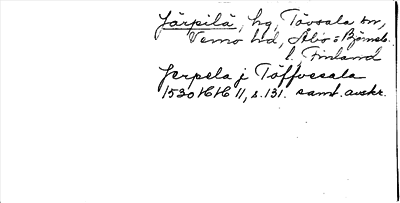 Järpilä, hg, Tövsala sn,
Vemo hd, Åbo = Björneb.
l. Finland
Jerpela j Töffvesala
1530 HH 11, s. 131. samt. avskr.